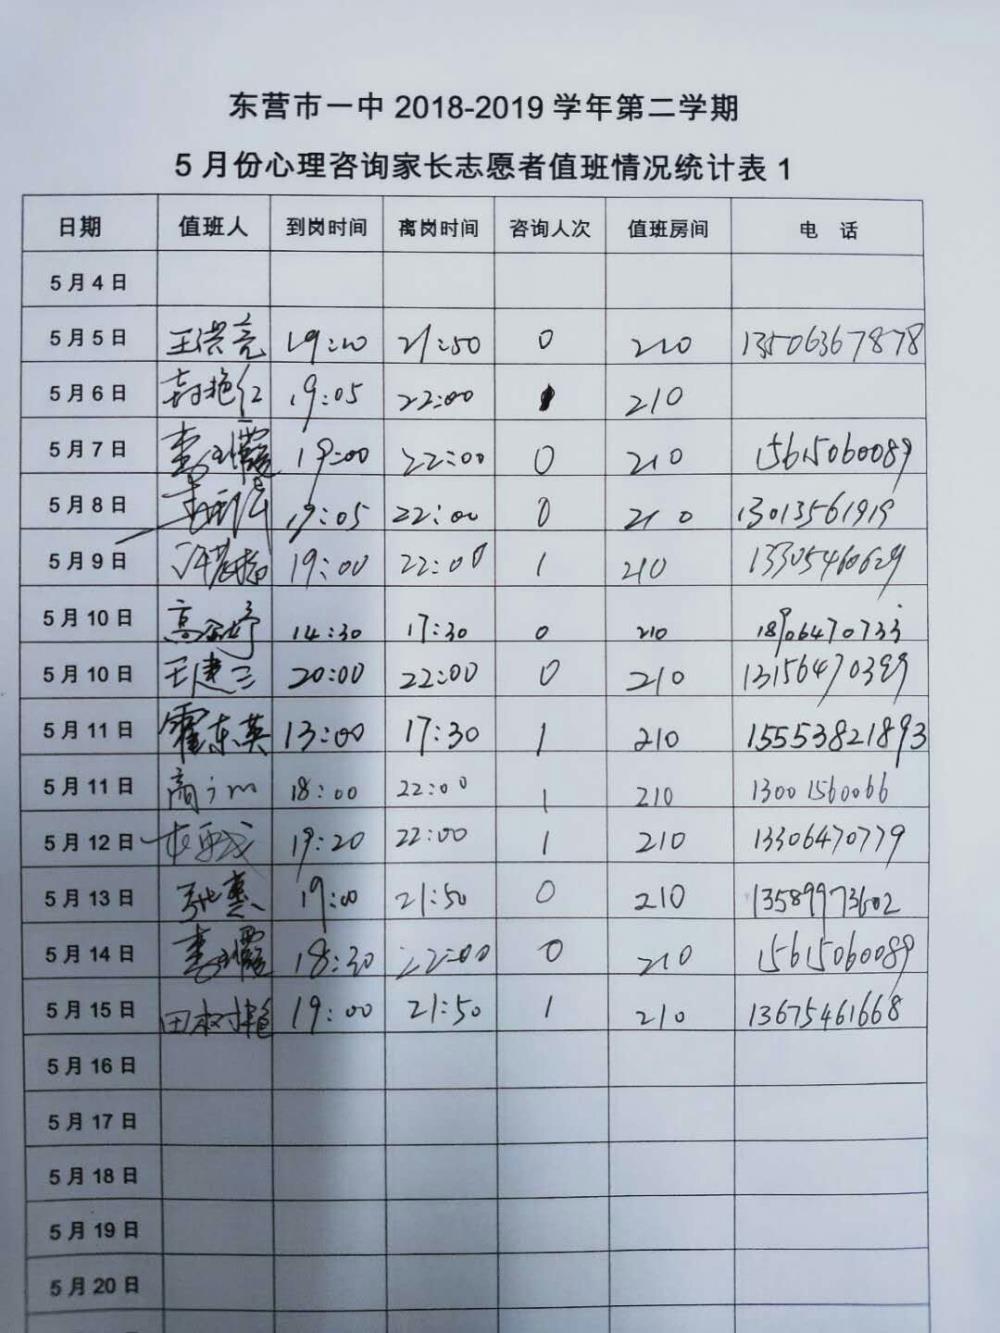 东营市一中 2018-2019 学年第二学期
5 月份心理咨询家长志愿者值班情况统计表 1
日期 值班人 到岗时间 离岗时间 咨询人次 值班房间 电 话
5 月 4 日
5 月 5 日 王洪亮 19:20 21:50 0 210 13506367878
5 月 6 日 19:05 22:00 1 210
5 月 7 日 19:00 22:00 0 210 15615060089
5 月 8 日 19:05 22:00 0 210 13013561919
5 月 9 日 19:00 22:00 1 210 13305460629
5 月 10 日 14:30 17:30 0 210 18906470733
5 月 10 日 王建三 20:00 22:00 0 210 13156470399
5 月 11 日 霍东英 13:00 17:30 1 210 15553821893
5 月 11 日 18:00 22:00 1 210 13001560066
5 月 12 日 19:20 22:00 1 210 13306470779
5 月 13 日 张惠 19:00 21:50 0 210 13589973602
5 月 14 日 18:30 22:00 0 210 15615060089
5 月 15 日 19:00 21:50 1 210 13675461668
5 月 16 日
5 月 17 日
5 月 18 日
5 月 19 日
5 月 20 日